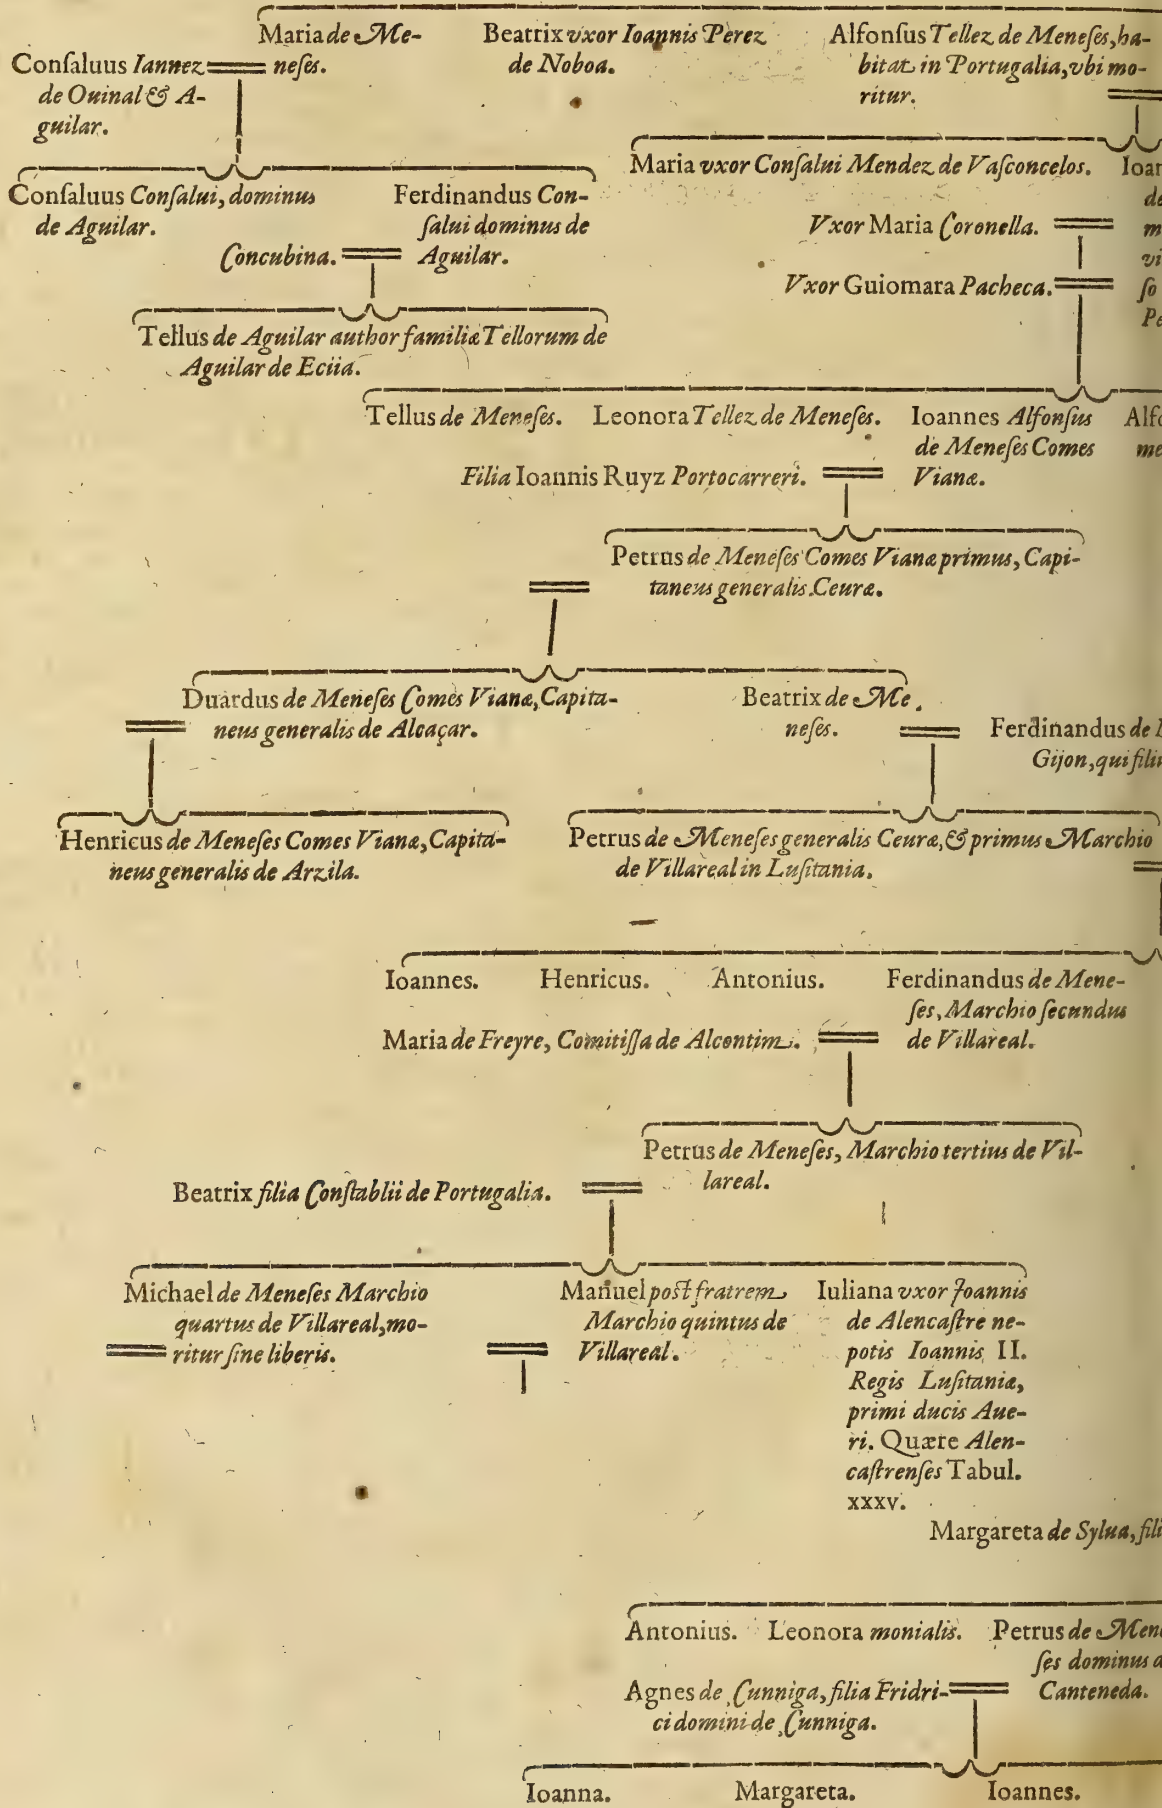 Maria de Me-
neſes.
Beatrix vxor Ioannis Perez
de Noboa.
Alfonſus Tellez de Meneſes, ha-
bitat in Portugalia, vbi mo-
ritur.
Conſaluus Iannez
de Ouinal & A-
guilar.
Conſaluus Conſalui, dominus
de Aguilar.
Ferdinandus Con-
ſalui dominus de
Aguilar.
Concubina.
Maria vxor Conſalui Mendez de Vaſconcelos.
Ioan
de
m
vi
ſo
Pe
Vxor Maria Coronella.
Vxor Guiomara Pacheca.
Tellus de Aguilar author familiæ Tellorum de
Aguilar de Eciia.
Tellus de Meneſes.
Leonora Tellez de Meneſes.
Ioannes Alfonſus
de Meneſes Comes
Vianæ.
Alfo
me
Filia Ioannis Ruyz Portocarreri.
Petrus de Meneſes Comes Vianæ primus, Capi-
taneus generalis Ceuræ.
Duardus de Meneſes Comes Vianæ, Capita-
neus generalis de Alcaçar.
Beatrix de Me
neſes.
Ferdinandus de
Gijon, qui filiu
Henricus de Meneſes Comes Vianæ, Capita-
neus generalis de Arzila.
Petrus de Meneſes generalis Ceuræ, & primus Marchio
de Villareal in Luſitania.
Ioannes.
Henricus.
Antonius.
Ferdinandus de Mene-
ſes, Marchio ſecundus
de Villareal.
Maria de Freyre, Comitiſſa de Alcontim.
Petrus de Meneſes, Marchio tertius de Vil-
lareal.
Beatrix filia Conſtablii de Portugalia.
Michael de Meneſes Marchio
quartus de Villareal, mo-
ritur ſine liberis.
Manuel poſt fratrem
Marchio quintus de
Villareal.
Iuliana vxor Joannis
de Alencaſtre ne-
potis Ioannis II.
Regis Luſitaniæ,
primi ducis Aue-
ri. Quære Alen-
caſtrenſes Tabul.
xxxv.
Margareta de Sylua, fili
Antonius.
Leonora monialis.
Petrus de Mene
ſes dominus d
Canteneda.
Agnes de Cunniga, filia Fridri-
ci domini de Cunniga.
Ioanna.
Margareta.
Ioannes.